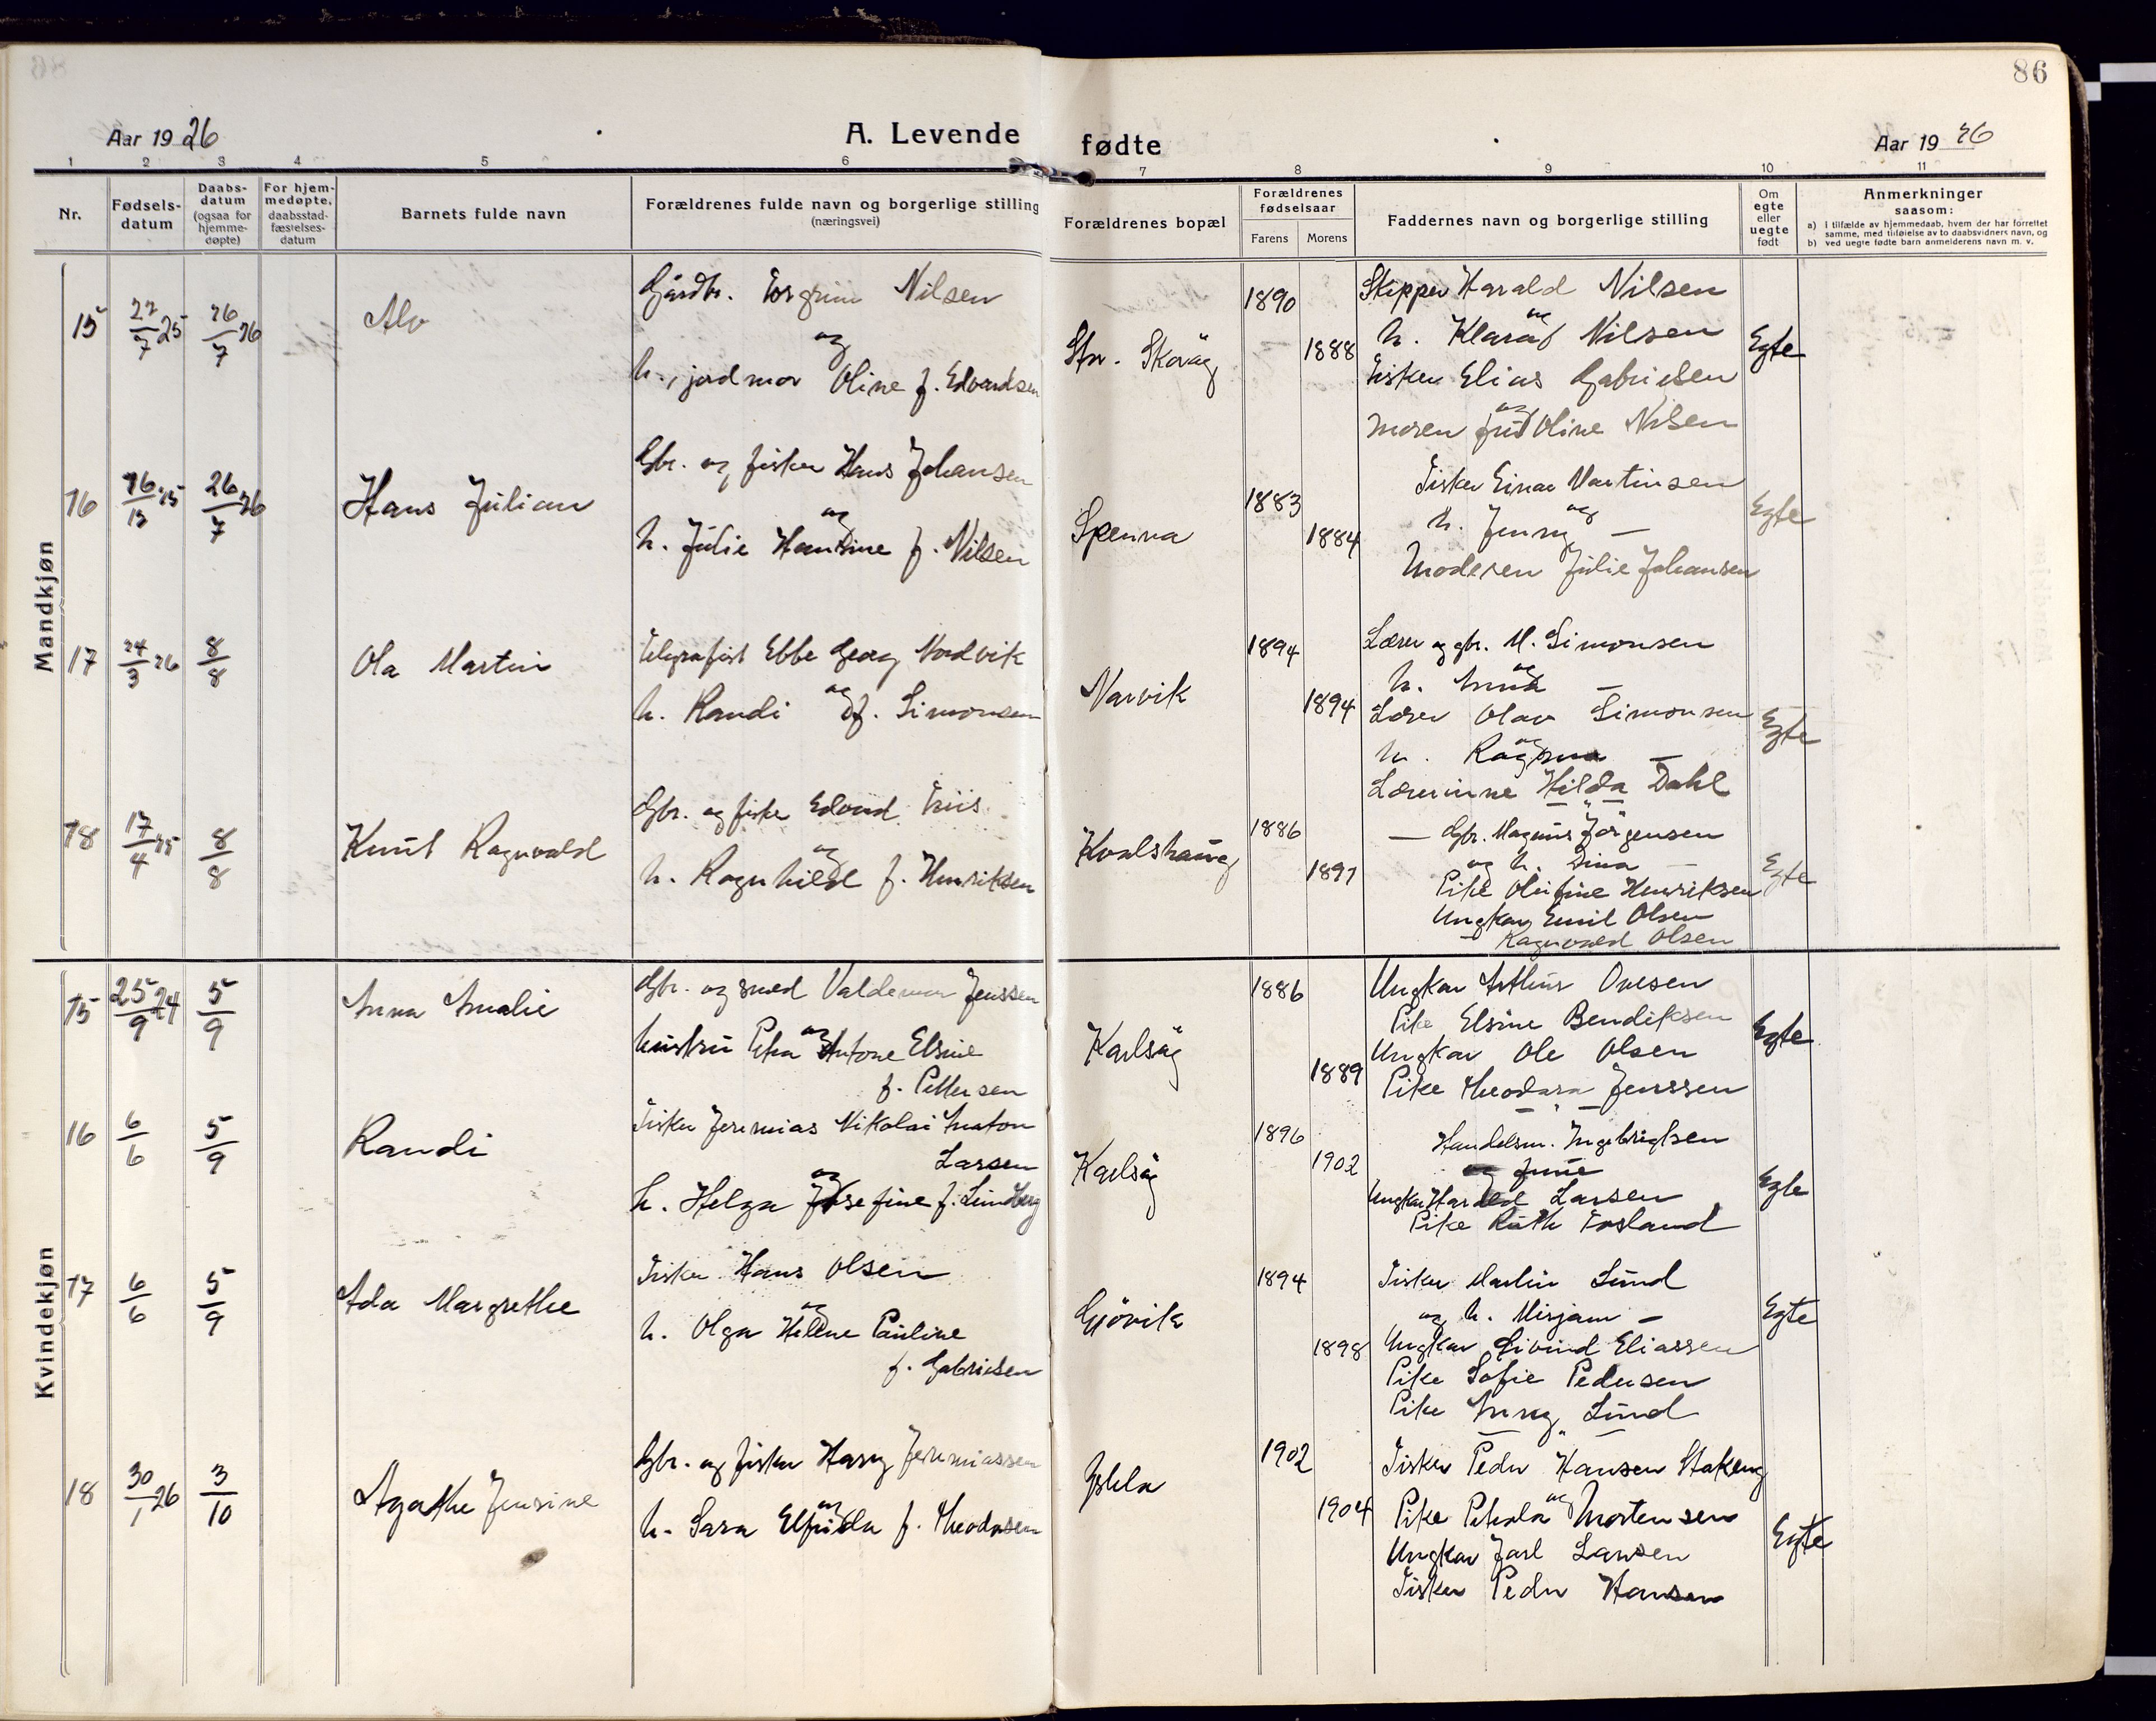 86
Aar 1926
A. Levende fødte
Aar 1926
1 2 3 4 5 6 7 8 9 10 11
Nr.
Fødsels-
datum
Daabs-
datum
(ogsaa for
hjemme-
døpte)
For hjem-
medøpte,
daabsstad-
fæstelses-
datum
Barnets fulde navn
Forældrenes fulde navn og borgerlige stilling
(næringsvei)
Forældrenes bopæl
Forældrenes
fødselsaar
Farens Morens
Faddernes navn og borgerlige stilling
Om
egte
eller
uegte
født
Anmerkninger
saasom:
a) I tilfælde av hjemmedaab, hvem der har forrettet
samme, med tilføielse av to daabsvidners navn, og
b) ved uegte fødte barn anmelderens navn m. v.
Mandkjøn
15
22/7 25
26/7 26
Alv
Gårdbr. Torgrim Nilsen
og
h., jordmor Oline f. Edvardsen
Str. Skorøg
1890
1888
Skipper Harald Nilsen
og
h. Klara Nilsen
Fisker Elias Gabrielsen
og
Moren fru Oline Nilsen
Egte
16
26/7 26
Hans Julian
Gbr. og fisker Hans Johansen
og
h. Julie Hansine f. Nilsen
Spenna
1883
1884
Fisker Einar Martinsen
og
h. Jenny —
Moderen Julie Johansen
Egte
17
24/3 26
8/8
Ola Martin
Telegrafist Ebbe Georg Nordvik
og
h. Randi f. Simonsen
Narvik
1894
1894
Lærer og gbr. M. Simonsen
og
h. Anna —
Lærer Olav Simonsen
og
h. Ragna —
Lærerinne Hilda Dahl
Egte
18
17/4 25
8/8
Knut Ragnvald
Gbr. og fisker Edvard Friis
og
h. Ragnhild f. Henriksen
Kvalshaug
1886
1891
Gbr. Magnus Jørgensen
og h. Dina —
Pike Olufine Henriksen
Ungkar Emil Olsen
— Ragnvald Olsen
Egte
Kvindekjøn
15
25/9 24
5/9
Anna Amalie
Gbr. og smed Valdemar Jenssen
og
hustru Petra Antone Elsine
f. Pettersen
Karlsøy
1886
1889
Ungkar Arthur Ovesen
Pike Elsine Bendiksen
Ungkar Ole Olsen
Pike Theodora Jenssen
Egte
16
6/6
5/9
Randi
Fisker Jeremias Nikolai Anton
Larsen
og
h. Helga Josefine f. Lundberg
Karlsøy
1896
1902
Handelsm. Ingebrigtsen
og frue
Ungkar Harald Larsen
Pike Ruth Torsland
Egte
17
6/6
5/9
Ada Margrethe
Fisker Hans Olsen
og
h. Olga Helene Pauline
f. Gabrielsen
Gjøvik
1894
1898
Fisker Martin Lund
og h. Mirjam —
Ungkar Eivind Eliassen
Pike Sofie Pedersen
Pike Anny Lund
Egte
18
30/1 26
3/10
Agathe Jensine
Gbr. og fisker Harry Jeremiassen
og
h. Sara Elfrida f. Theodorsen
1902
1904
Fisker Peder Hansen Stakeng
og
Pike Petrola Mortensen
Ungkar Jarl Larsen
Fisker Peder Hansen
Egte